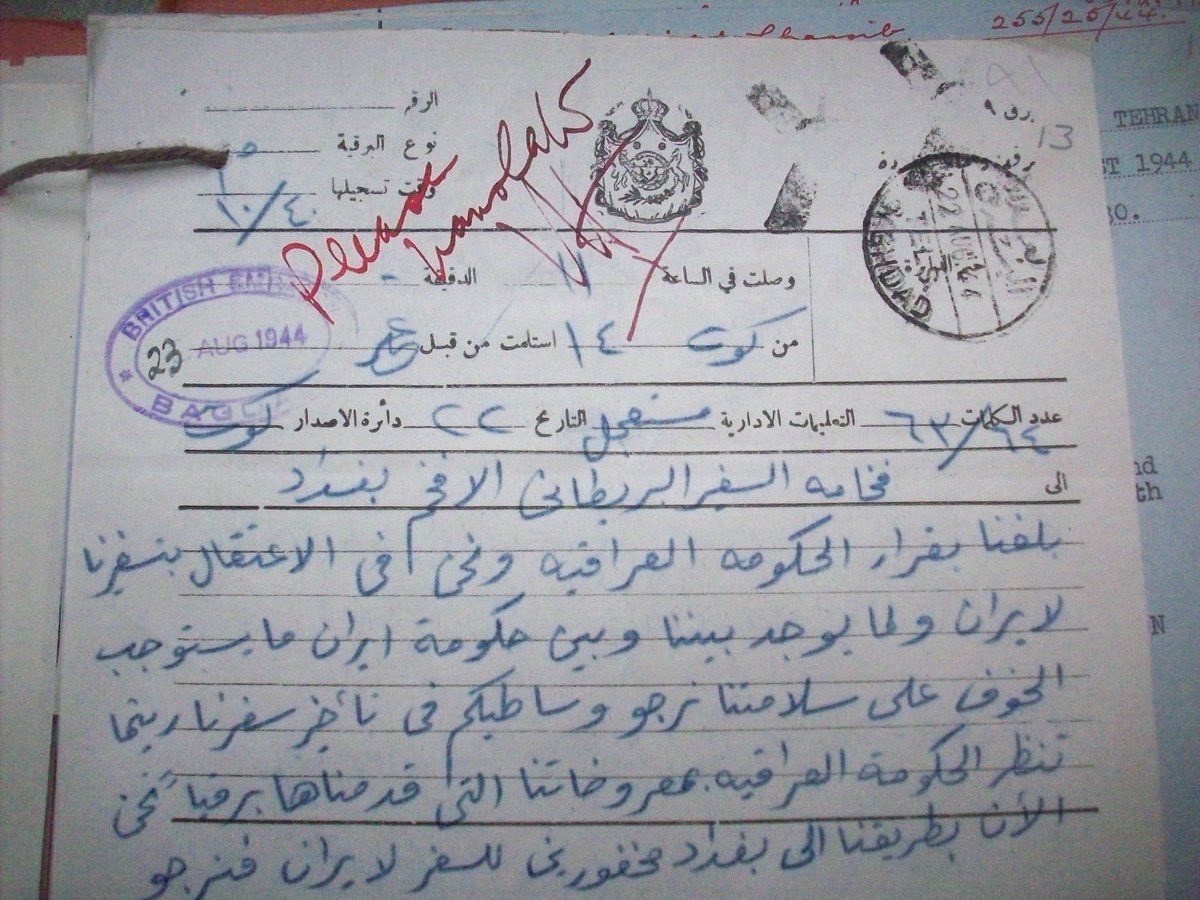 255/25/44.
TEHRAN
ST 1944
13
الرقم
نوع البرقية
وقت تسجيلها
١٠/٤٠
Please translate
BAGHDAD
22 AUG 44
TELS.
وصلت في الساعة ١١ الدقيقة -
BRITISH EMB
23 AUG 1944
BAGHDAD
من كوت ١٤ استلمت من قبل
عدد الكلمات ٦٣/٦٤ التعليمات الادارية مستعجل التاريخ ٢٢ دائرة الاصدار كوت
الى فخامه السفير البريطاني الافخم بغداد
بلغنا بقرار الحكومه العراقيه ونحن في الاعتقال بتسفيرنا
لايران ولما يوجد بيننا وبين حكومة ايران ما يستوجب
الخوف على سلامتنا نرجو وساطتكم في تأخير سفرنا ريثما
تنظر الحكومة العراقيه بمعروضاتنا التي قدمناها برقياً نحن
الأن بطريقنا الى بغداد مخفورين للسفر لايران فنرجو